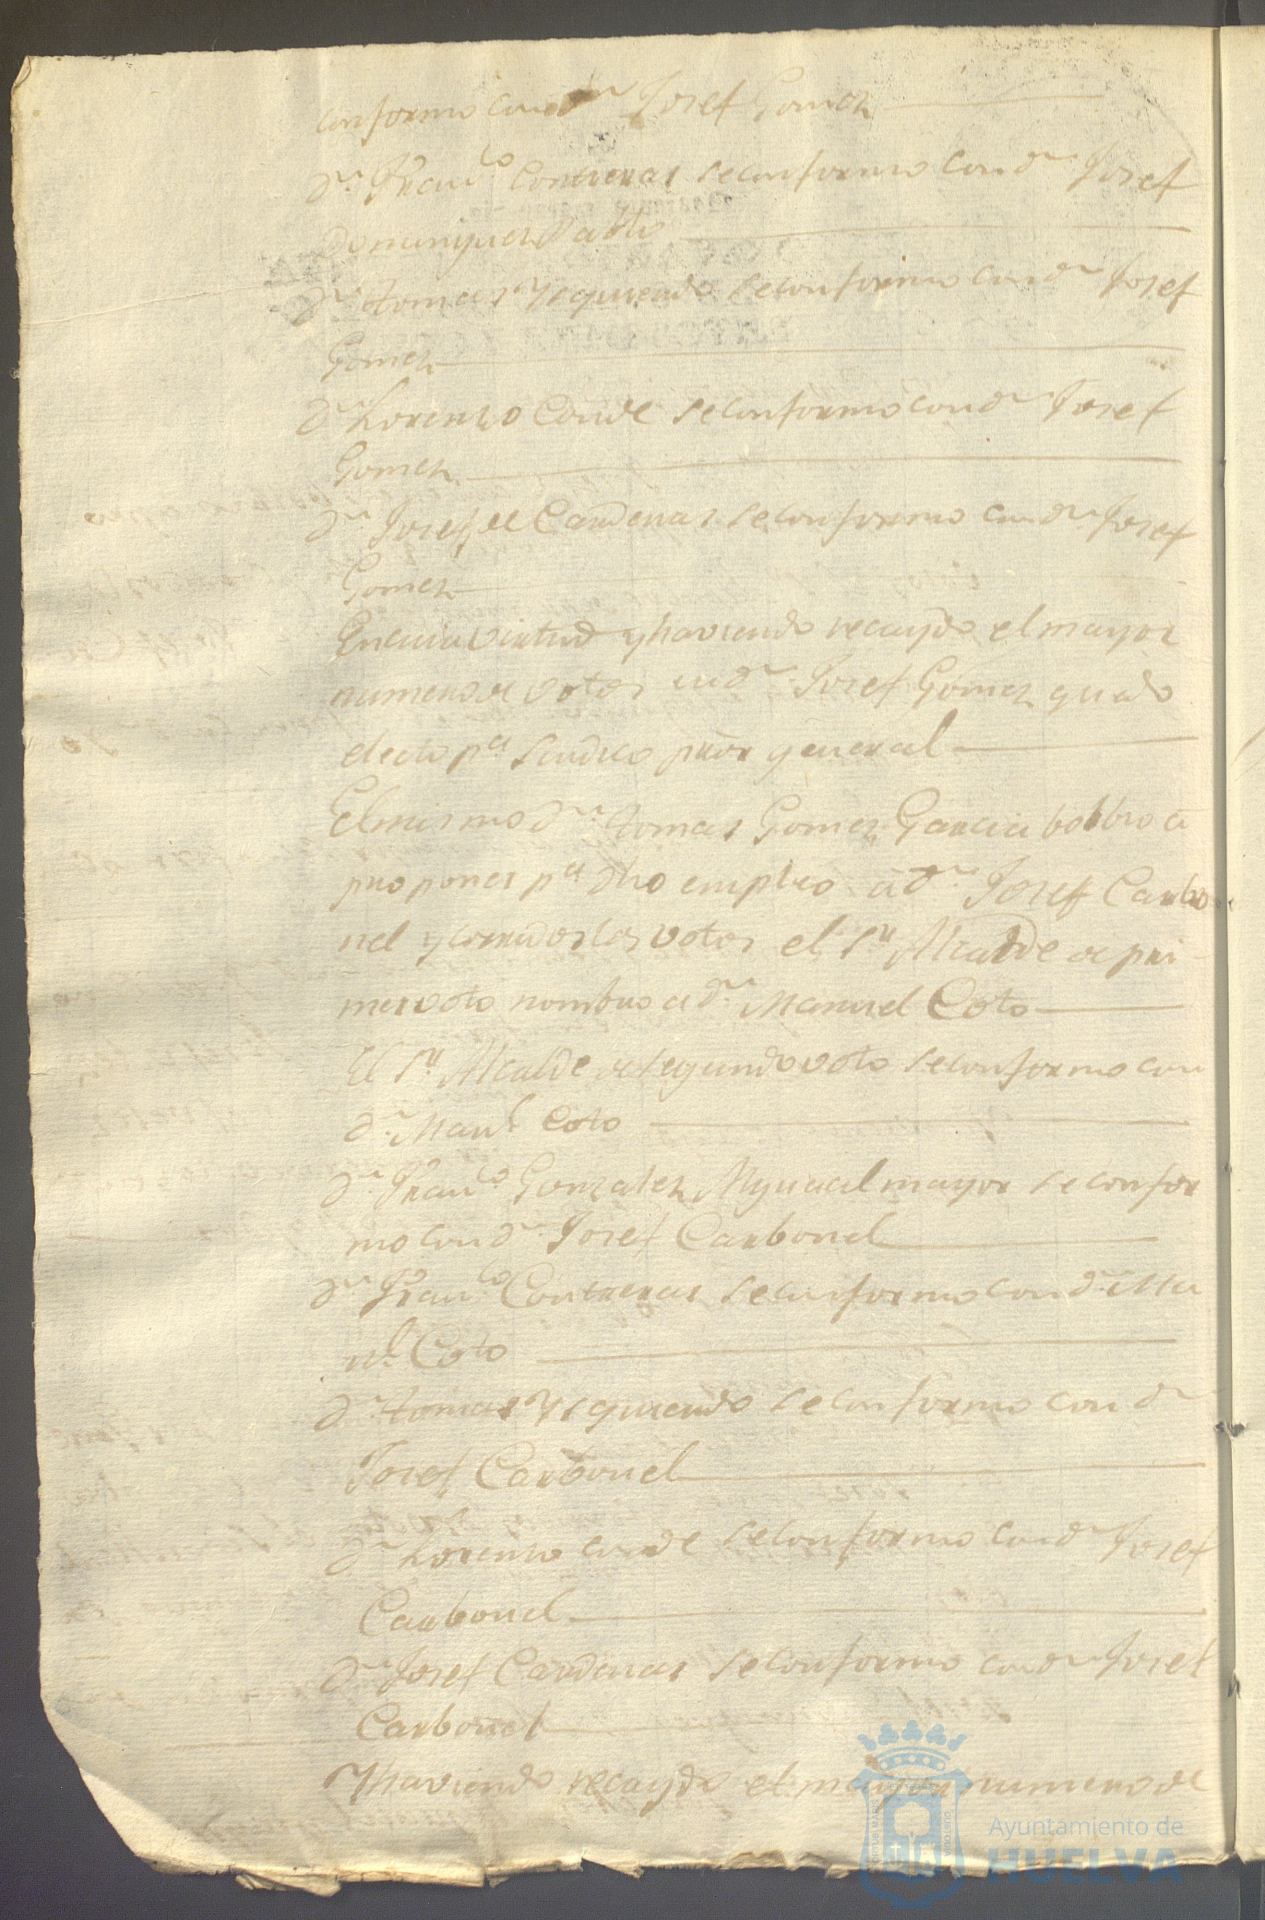 conformo con dn Josef Gomez
Dn Franco Contreras se conformo con dn Josef
Dominguez Pablo
Dn tomas Ysquierdo se conformo con dn Josef
Gomez
Dn Lorenzo Conde se conformo con dn Josef
Gomez
Dn Josef de Cardenas se conformo con dn Josef
Gomez
En cuia virtud y haviendo recaydo el mayor
numero de votos en dn Josef Gomez quedo
electo pa Sindico pror general
El mismo dn tomas Gomez Garcia bolbio a
proponer pa dho empleo a dn Josef Carbo
nel y corridos los votos el Sr Alcalde de pri-
mer voto nombro a dn Manuel Coto
El Sr Alcalde de segundo voto se conformo con
dn Manl Coto
Dn Franco Gonzalez Alguacil mayor se confor
mo con dn Josef Carbonel
Dn Franco Contreras se conformo con dn Ma
nl Coto
Dn tomas Ysquierdo se conformo con dn
Josef Carbonel
Dn Lorenzo conde se conformo con dn Josef
Carbonel
Dn Josef Cardenas se conformo con dn Josef
Carbonel
Y haviendo recaydo el mayor numero de
Ayuntamiento de
HUELVA